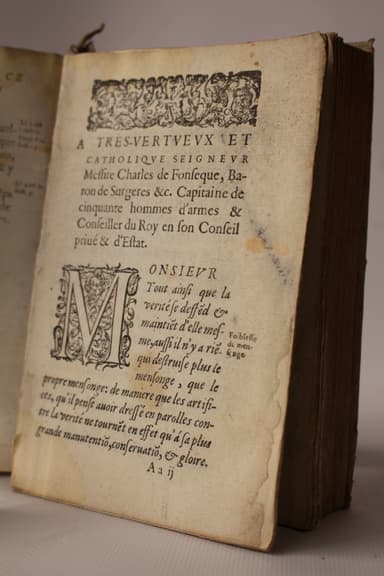 A TRES-VERTVEVX ET
CATHOLIQVE SEIGNEVR
Meſſire Charles de Fonſeque, Ba-
ron de Surgeres &c. Capitaine de
cinquante hommes d'armes &
Conſeiller du Roy en ſon Conſeil
priué & d'Eſtat.
MONSIEVR
Tout ainſi que la
verité ſe deffẽd &
maintiẽt d'elle meſ-
me, auſsi il n'y a riẽ
qui deſtruiſe plus le
menſonge, que le
propre menſonge: de maniere que les artifi-
ces, qu'il penſe auoir dreſſé en parolles con-
tre la verité ne tournẽt en effet qu'à ſa plus
grande manutentiõ, conſeruatiõ, & gloire.
Foibleſſe
de men-
ſonge
A a ij